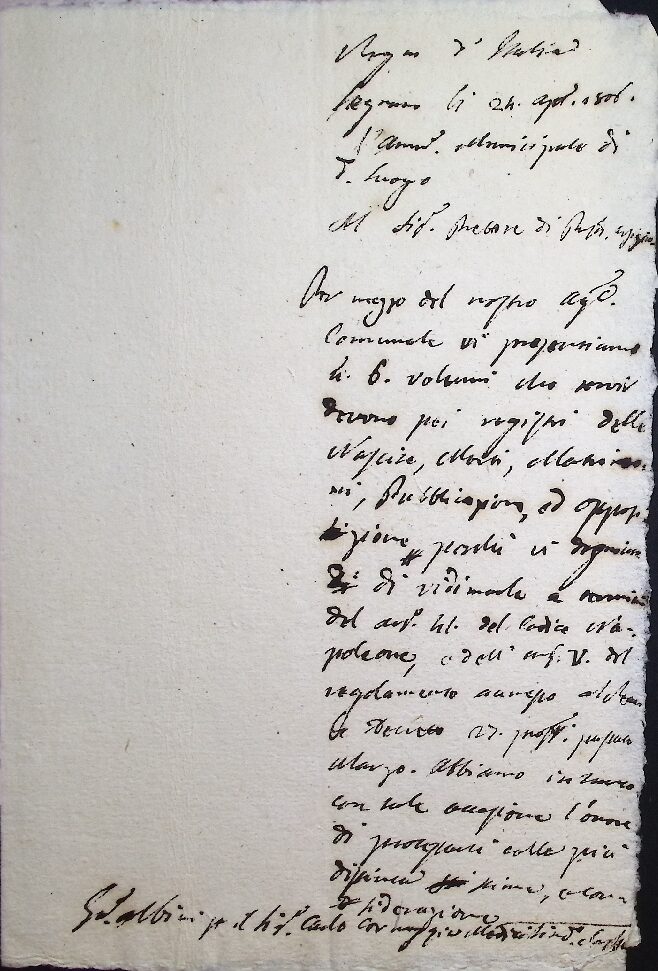 Regno d'Italia
li 24. Apr. 1806.
L'Amm. Municipale di
d. Luogo
Al Sig. Pretore di
Per mezzo del nostro Ag.
Comunale vi presentiamo
li. 6. volumi che servir
devono pei registri delle
Nascite, Morti, Matrimo-
ni, Pubblicazioni, ed oppos-
izione perchè vi
di vidimarle a termini
del art. 41. del Codice Na-
poleone, e dell'art. V. del
regolamento annesso al
Decreto 27. pross. passato
Marzo. Abbiamo intanto
con tale occasione l'onore
di protestarvi colla più
distinta stima, e con-
siderazione
Albini per il Sig. Carlo